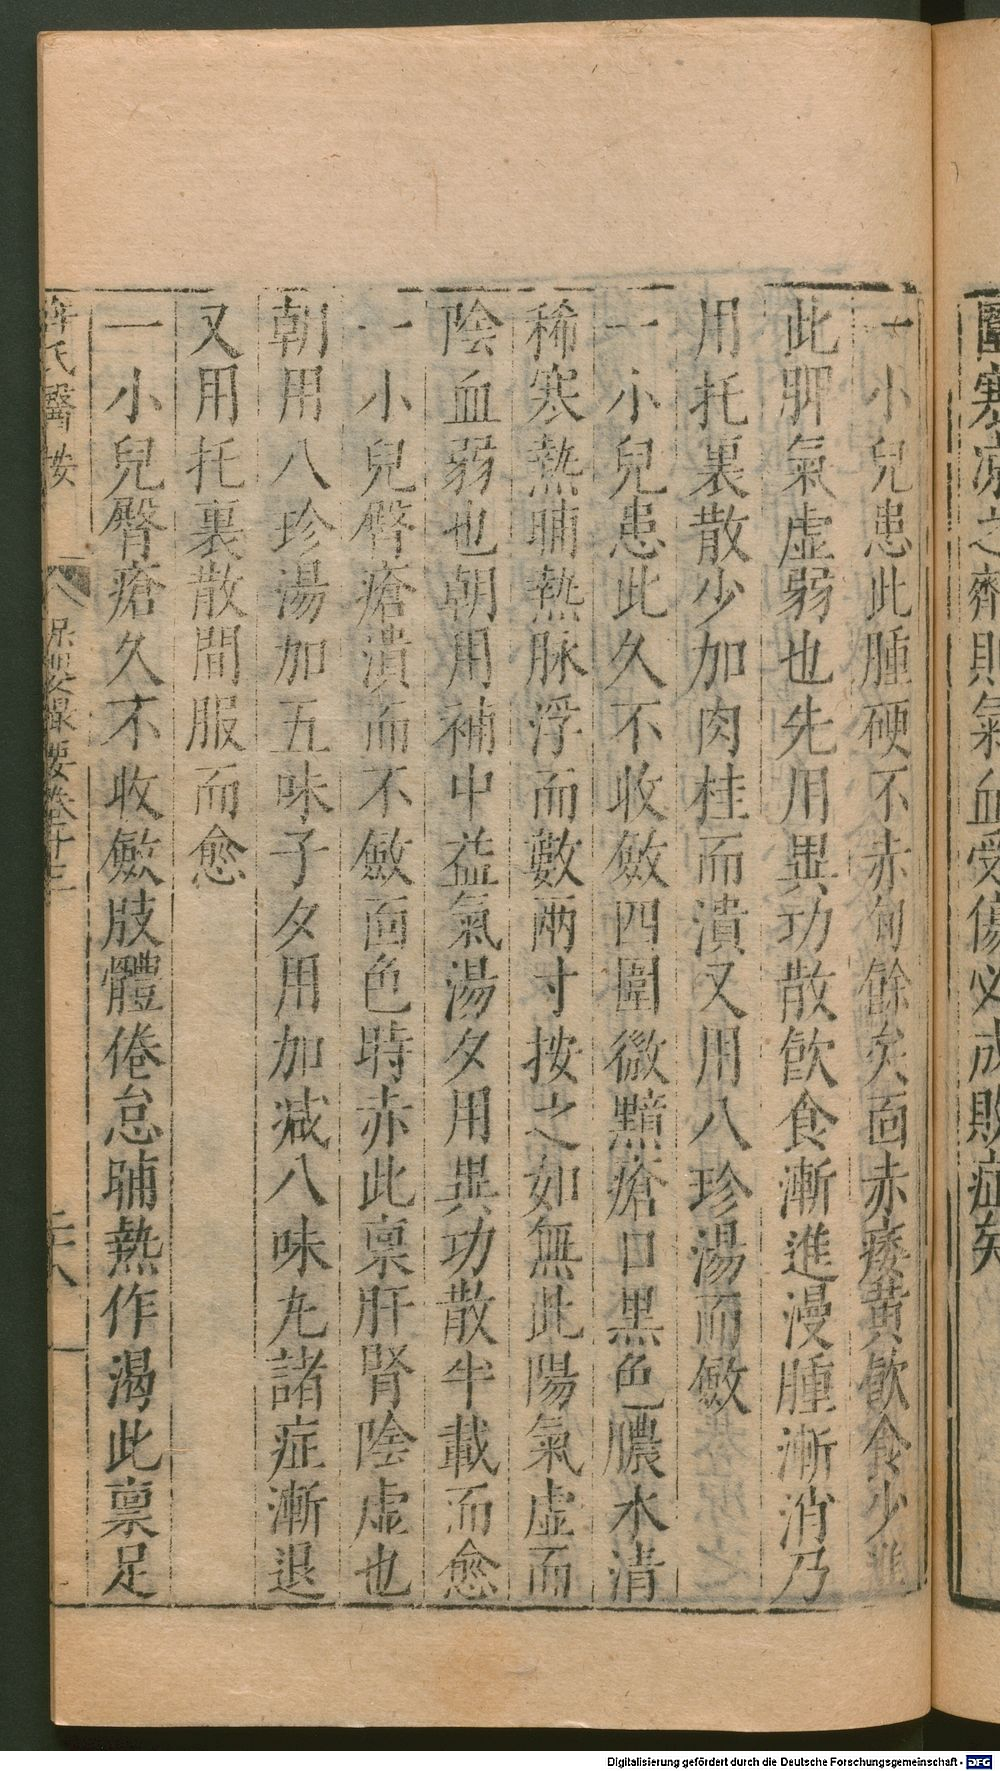 醫寒凉之劑則氣血受傷必成敗症矣
一小兒患此腫硬不赤旬餘矣面赤痿黃飲食少進
此脾氣虚弱也先用異功散飲食漸進漫腫漸消乃
用托裏散少加肉桂而潰又用八珍湯而斂
一小兒患此久不收斂四圍微黯瘡口黑色膿水清
稀寒熱晡熱脉浮而數兩寸按之如無此陽氣虚而
陰血弱也朝用補中益氣湯夕用異功散半載而愈
一小兒臀瘡潰而不斂面色時赤此稟肝腎陰虚也
朝用八珍湯加五味子夕用加减八味丸諸症漸退
又用托裏散間服而愈
一小兒臀瘡久不收斂肢體倦怠晡熱作渴此稟足
薛氏醫按 保嬰撮要卷十三 二十八
Digitalisierung gefördert durch die Deutsche Forschungsgemeinschaft - DFG